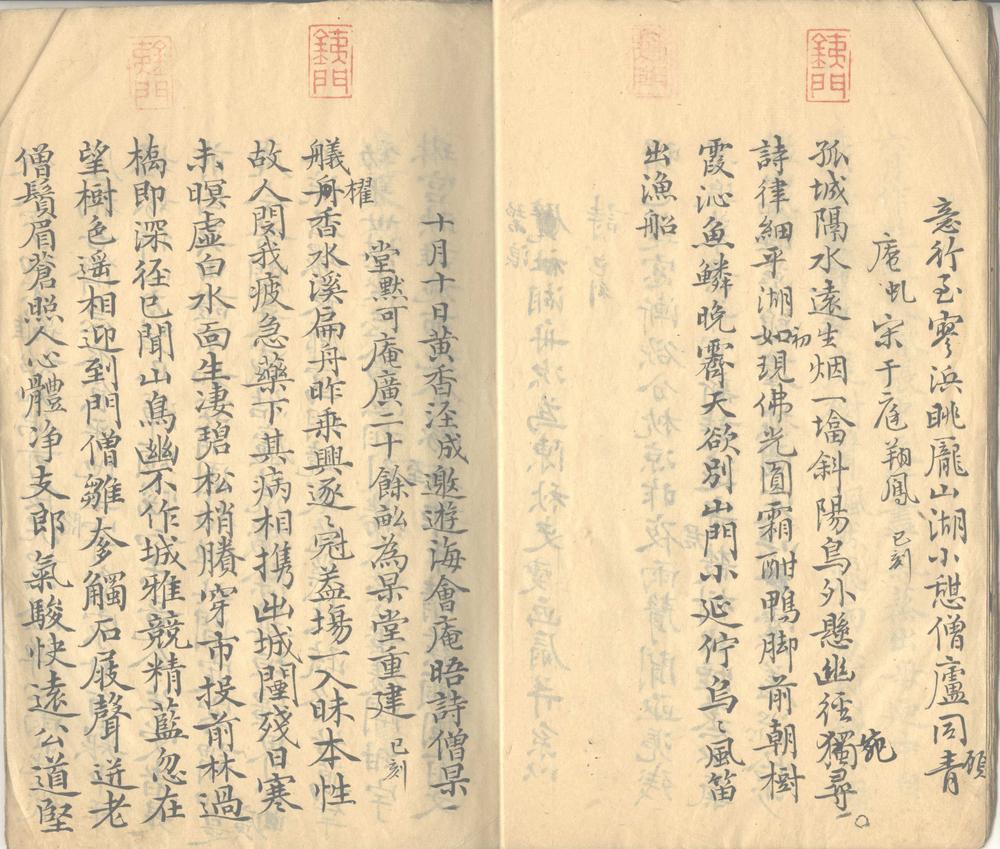 銕門
意行至寥浜眺龎山湖小憩僧廬同青
碩
庵虬宋于庭翔鳳已刻
孤城隔水遠生烟一墖斜陽鳥外懸幽徑獨尋
初
宛
詩律細平湖如現佛光圓霜酣鴨脚前朝樹
霞沁魚鱗晚霽天欲別山門小延佇烏〻風笛
出漁船
銕門
十月十日黃香涇成邀遊海會庵晤詩僧杲
堂黙可庵廣二十餘畝為杲堂重建已刻
艤舟香水溪扁舟昨乗興逐〻冠盖塲一入昧本性
櫂
故人閔我疲急藥下其病相携出城闉殘日寒
未暝虛白水面生凄碧松梢賸穿市投前林過
橋即深徑已聞山鳥幽不作城雅競精藍忽在
望樹色遥相迎到門僧雛奓觸石屐聲迸老
僧鬚眉蒼照人心體净支郎氣駿快遠公道堅